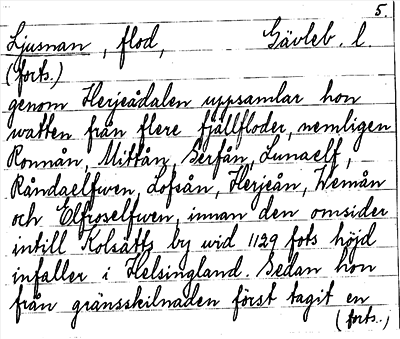 5.
Ljusnan, flod, Gävleb. l.
(forts.)
genom Herjeådalen uppsamlar hon
watten från flere fjällfloder, nemligen
Ronnån, Mittån, Serfån, Lunaelf,
Råndaelfwen, Lofsån, Herjeån, Wemån
och Elfroselfwen, innan den omsider
intill Kolsätts by wid 1129 fots höjd
infaller i Helsingland. Sedan hon
från gränsskilnaden först tagit en
(forts.,)